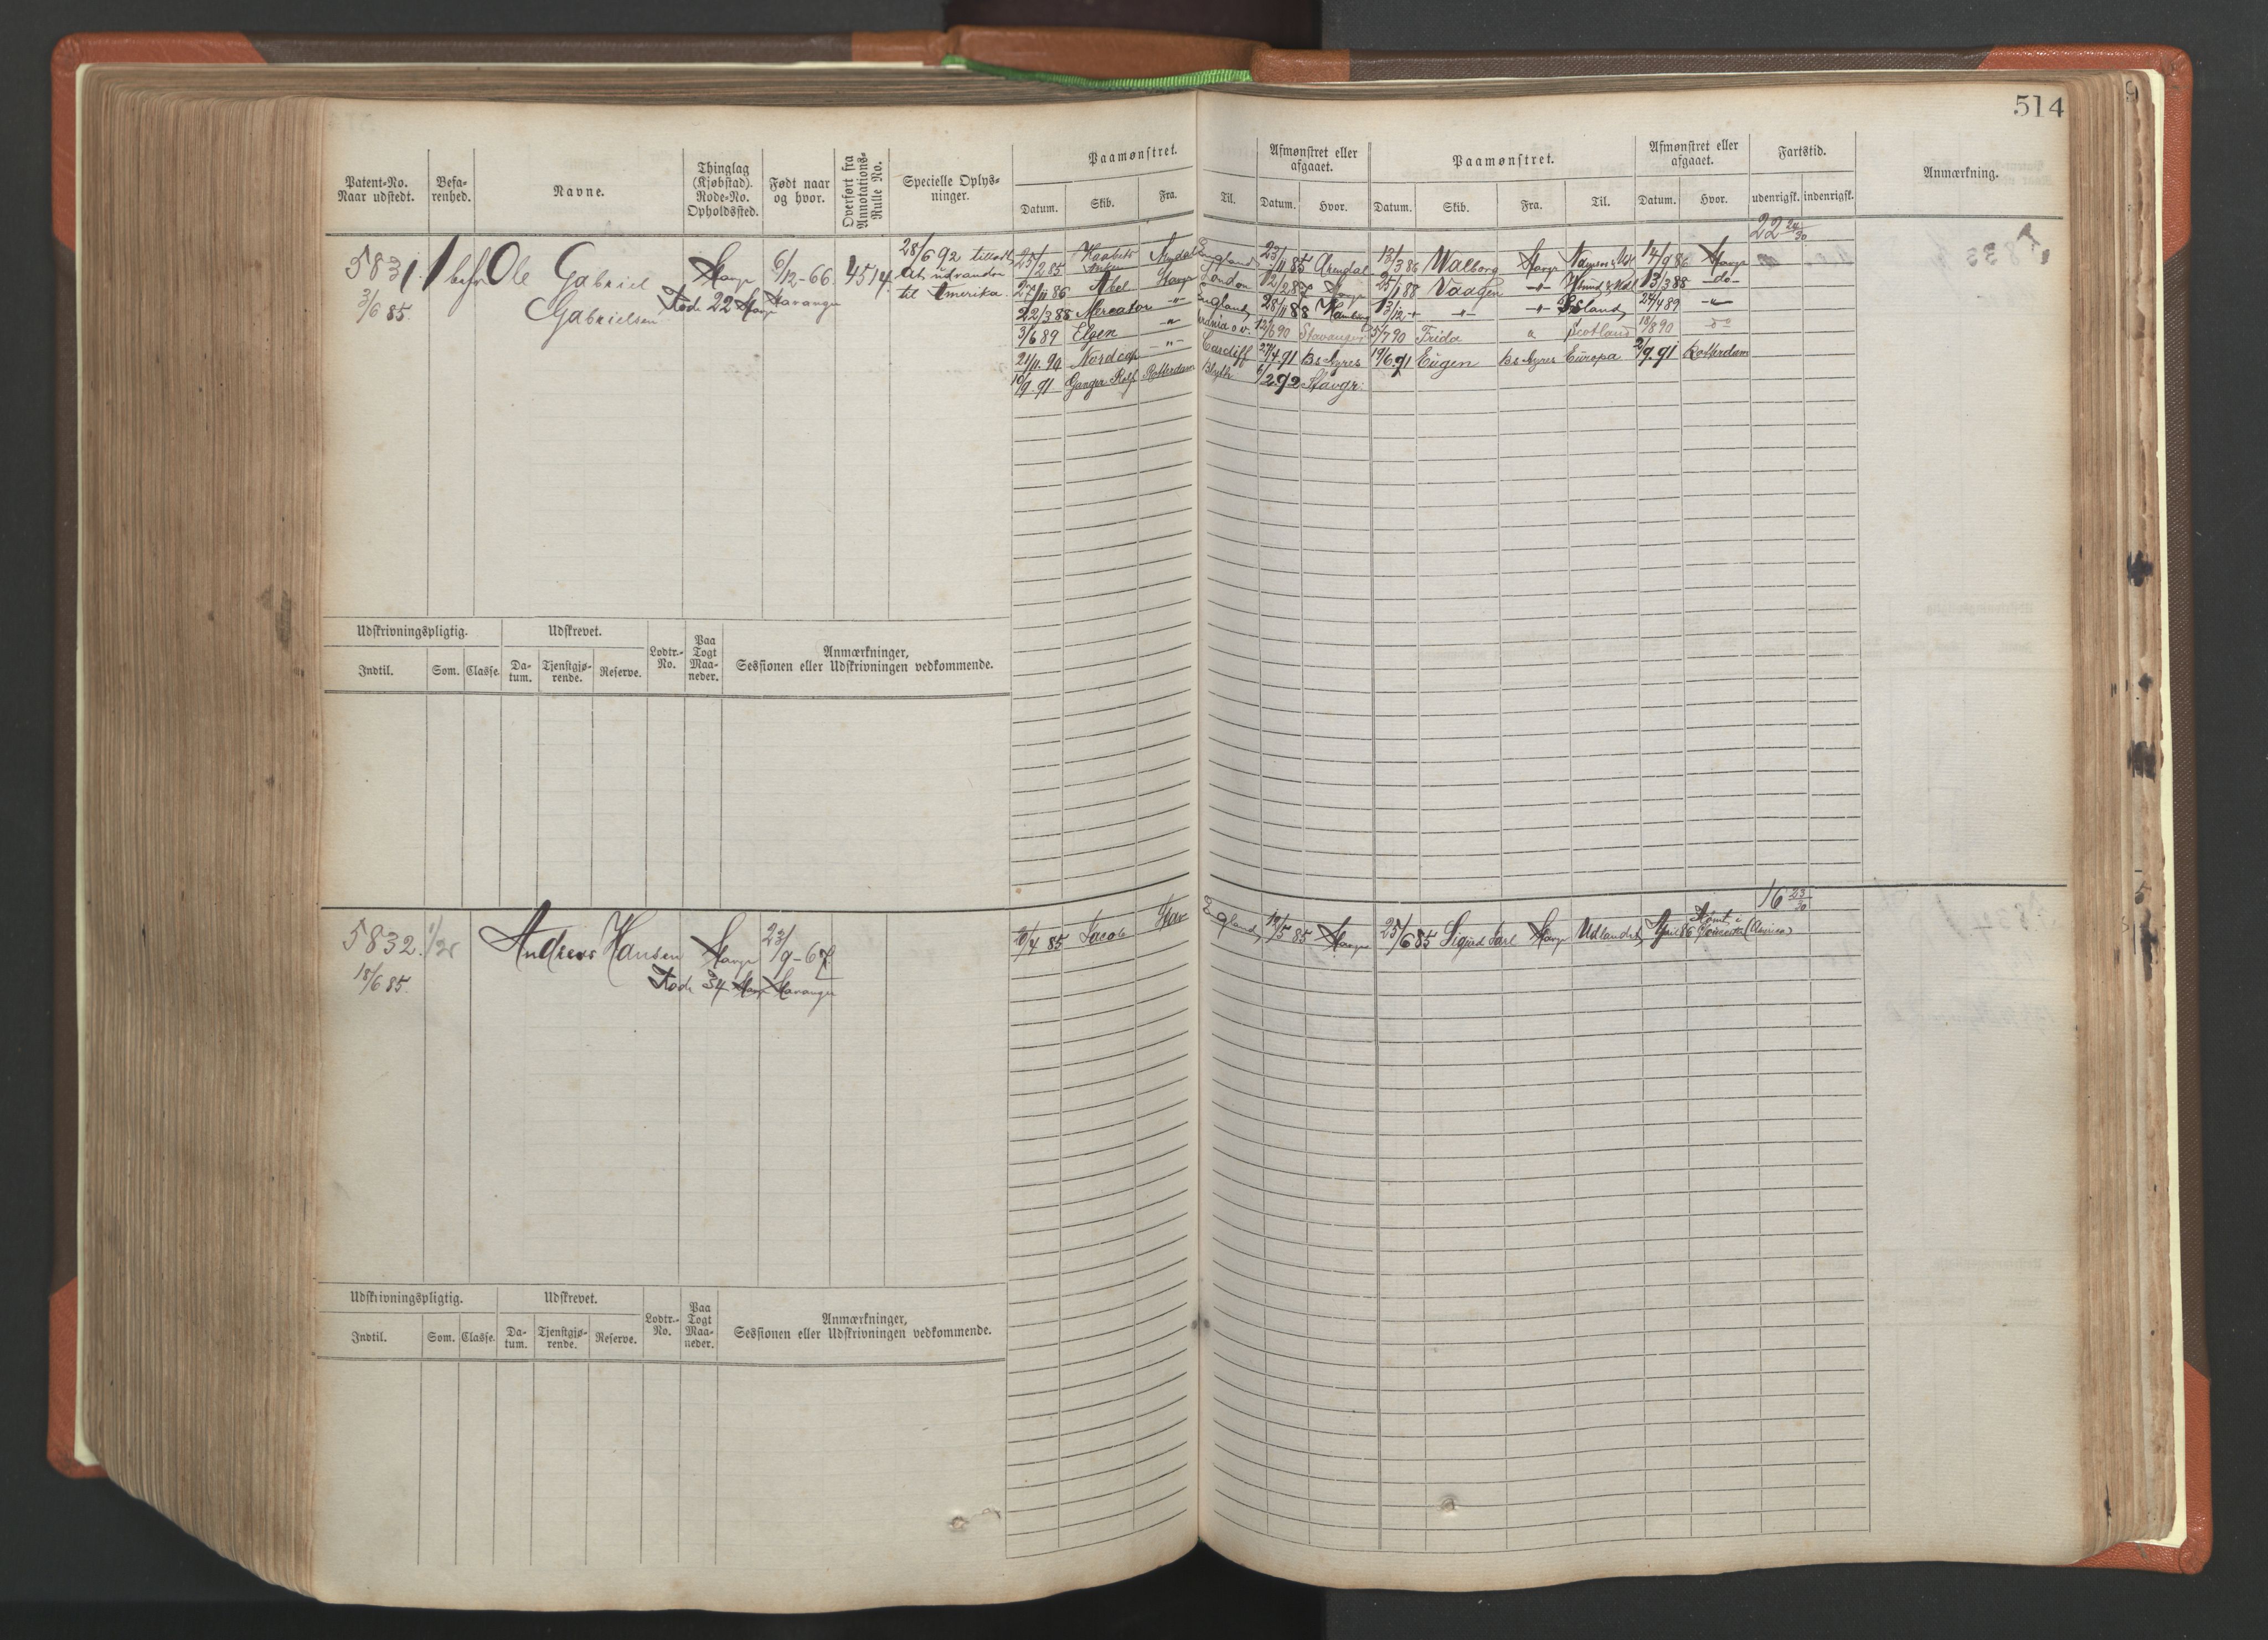 514
Patent-No.
Naar udstedt.
Befa-
renhed.
Navne.
Thinglag
(Kjøbstad).
Rode-No.
Opholdssted.
Født naar
og hvor.
Overført fra
Annotations-
Rulle No.
Specielle Oplys-
ninger.
Paamønstret.
Datum.
Skib.
Fra.
Til.
Afmønstret eller
afgaaet.
Datum.
Hvor.
Paamønstret.
Datum.
Skib.
Fra.
Til.
Afmønstret eller
afgaaet.
Datum.
Hvor.
Fartstid.
udenrigsk.
indenrigsk.
Anmærkning.
22 24/30
5831. 1 befr Ole Gabriel
Gabrielsen
3/6 85.
Stavgr
Rode 22 Stavgr
6/12-66
Stavanger
4514.
28/6 92 tilladt
at udvandre
til Amerika.
25/2 85 England 23/11 85 Arendal 13/3 86 Valborg Stavgr 14/9 86 Stavgr
27/11 86 Abel Stavgr London 12/2 87 Stavgr 25/1 88 Vaagen -"- 13/3 88 -do-
22/3 88 Mercator -"- England 28/11 88 Hamburg 13/12 - -"- -"- Island 24/4 89 -"-
3/6 89 Elgen -"- 12/6 90 Stavanger 25/7 90 Frida " Scotland 18/8 90 do
21/11 90 Nordcap -"- Cardiff 27/4 91 Bs Ayres 19/6 91 Eugen Bs Ayres Europa 2/9 91 Rotterdam
10/9 91 Ganger Rolf Rotterdam Blyth 6/2 92 Stavgr.
Udskrivningspligtig.
Indtil.
Som.
Classe.
Udskrevet.
Da-
tum.
Tjenstgjø-
rende.
Reserve.
Lodtr.-
No.
Paa
Togt
Maa-
neder.
Anmærkninger,
Sessionen eller Udskrivningen vedkommende.
16 23/30
5832. Andreas Hansen
18/6 85.
Stavgr
Rode 34 Stavgr
23/9-67
Stavanger
10/4 85 Jacob Stav England 19/5 85 Stavgr 25/6 85 Sigurd Jarl Stavgr Udlandet April 86 Rømt i
Udskrivningspligtig.
Indtil.
Som.
Classe.
Udskrevet.
Da-
tum.
Tjenstgjø-
rende.
Reserve.
Lodtr.-
No.
Paa
Togt
Maa-
neder.
Anmærkninger,
Sessionen eller Udskrivningen vedkommende.